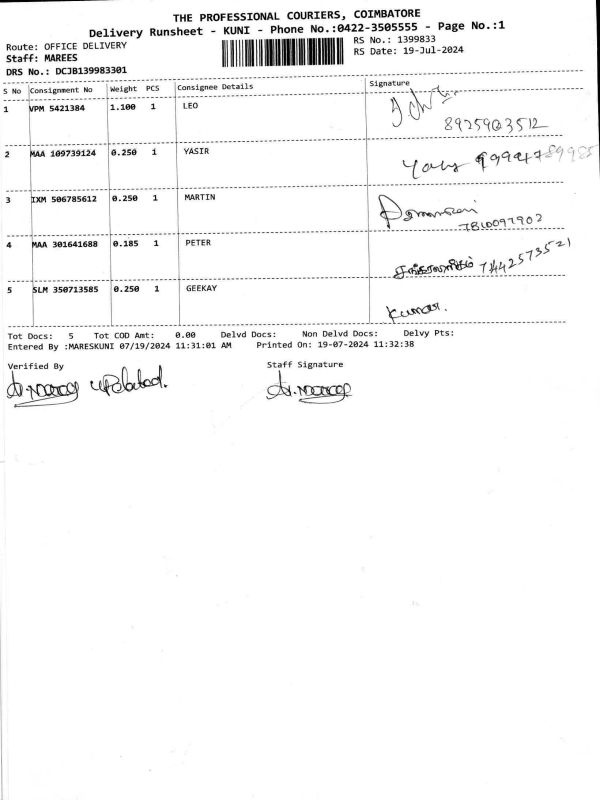 THE PROFESSIONAL COURIERS, COIMBATORE
Delivery Runsheet - KUNI - Phone No.:0422-3505555 - Page No.:1
Route: OFFICE DELIVERY RS No.: 1399833
Staff: MAREES RS Date: 19-Jul-2024
DRS No.: DCJB139983301
S No Consignment No Weight PCS Consignee Details Signature
1 VPM 5421384 1.100 1 LEO
8925903512
2 MAA 109739124 0.250 1 YASIR
3 IXM 506785612 0.250 1 MARTIN
7810097902
4 MAA 301641688 0.185 1 PETER
7442573521
5 SLM 350713585 0.250 1 GEEKAY
Kumar.
Tot Docs: 5 Tot COD Amt: 0.00 Delvd Docs: Non Delvd Docs: Delvy Pts:
Entered By :MARESKUNI 07/19/2024 11:31:01 AM Printed On: 19-07-2024 11:32:38
Verified By Staff Signature
updated.